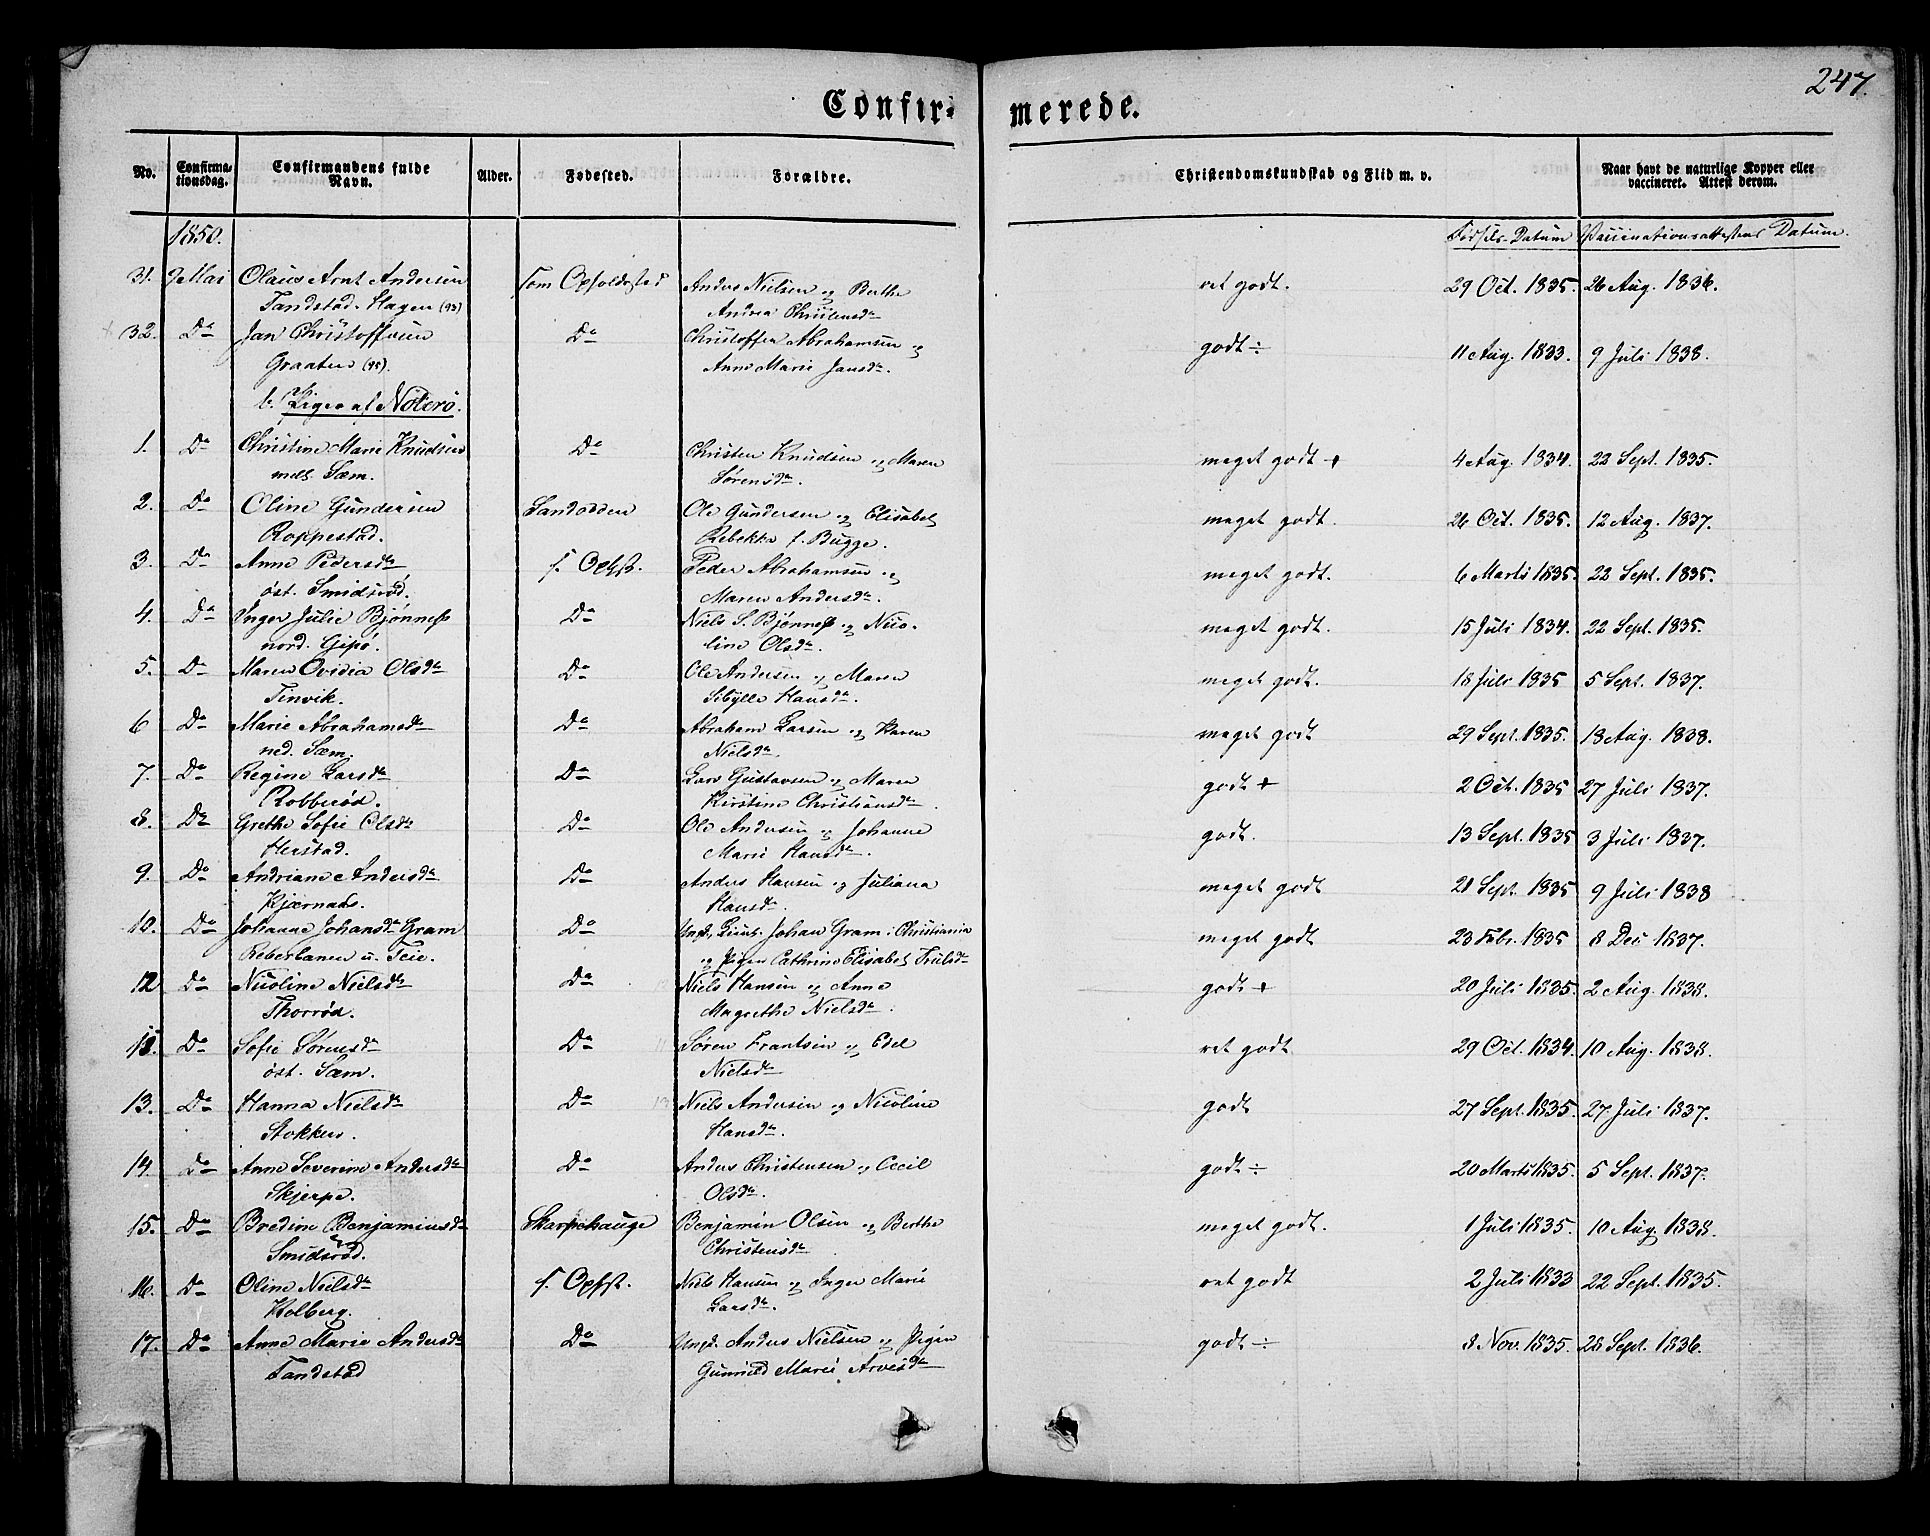 247.
Confirmerede.
No. Confirmationsdag. Confirmandens fulde Navn. Alder. Fødested. Forældre. Christendomskundskab og Flid m. v. Naar havt de naturlige Kopper eller vaccineret. Attest derom.
1850. Fødsels-Datum Vaccinationsattestens Datum.
31. 7 Mai Olaus Arnt Andersen som Opholdssted Anders Nielsen og Berthe ret godt. 29 Oct. 1835. 26 Aug. 1836.
Tandstad-Hagen (93) Andrea Christensdr
32. Do Jan Christoffersen Do Christoffer Abrahamsen og godt ÷ 11 Aug. 1833. 9 Juli 1838.
Graaten (95). Anne Marie Jansdr.
b. Piger af Nøterø.
1. Do Christine Marie Knudsen Do Christen Knudsen og Maren meget godt + 4 Aug. 1834. 22 Sept. 1835.
mels. Sæm. Sørensdr.
2. Do Oline Gundersen Sandodden Ole Gundersen og Elisabet meget godt. 26 Oct. 1835. 12 Aug. 1837.
Roppestad. Rebekka f. Bugge.
3. Do Anne Pedersdr s. Ophst. Peder Abrahamsen og meget godt. 6 Marts 1835. 22 Sept. 1835.
øst. Smidsrød. Maren Andersdr.
4. Do Inger Julie Bjønness Do Niels S. Bjønness og Nico- meget godt. 15 Juli 1834. 22 Sept. 1835.
nord. Gipø. line Olsdr.
5. Do Maren Ovidia Olsdr Do Ole Andersen og Maren meget godt. 18 Juli 1835 5 Sept. 1837.
Tinvik. Sibylle Hansdr.
6 Do Marie Abrahamsdr Do Abraham Larsen og Karen meget godt 29 Sept. 1835. 18 Aug. 1838.
ned. Sæm. Nielsdr
7. Do Regine Larsdr Do Lars Gustavsen og Maren godt + 2 Oct. 1835 27 Juli 1837.
Robberød. Kirstine Christiansdr.
8. Do Grethe Sofie Olsdr Do Ole Andersen og Johanne godt. 13 Sept. 1835 3 Juli 1837.
Herstad. Marie Hansdr.
9. Do Andriane Andersdr Do Anders Hansen og Juliana meget godt 21 Sept. 1835 9 Juli 1838
Kjærnaas. Hansdr.
10. Do Johanne Johansdr Gram Do Ungk. Lieut. Johan Gram i Christiania meget godt 23 Febr. 1835 8 Dec 1837.
Reberbanen u. Teie. og Pigen Cathrine Elisabet Trulsdr
12 Do Nicoline Nielsdr Do Niels Hansen og Anne godt + 20 Juli 1835. 2 Aug. 1838.
Thorrød. Magrethe Nielsdr.
11. Do Sofie Sørensdr Do Søren Frantsen og Edel ret godt 29 Oct. 1834. 10 Aug. 1838.
øst. Sæm. Nielsdr
13. Do Hanna Nielsdr Do Niels Andersen og Nicoline godt 27 Sept. 1835. 27 Juli 1837.
Stokken. Hansdr.
14. Do Anne Severine Andersdr Do Anders Christensen og Cecil godt ÷ 20 Marts 1835. 5 Sept. 1837.
Skjerpe. Olsdr.
15. Do Bredine Benjaminsdr Skarpehauge Benjamin Olsen og Berthe meget godt. 1 Juli 1835. 10 Aug. 1838.
Smidsrød. Christensdr
16. Do Oline Nielsdr s. Ophst. Niels Hansen og Inger Marie ret godt 2 Juli 1833 22 Sept. 1835.
Kolberg. Larsdr.
17. Do Anne Marie Andersdr Do Ungk. Anders Nielsen og Pigen godt ÷ 8 Nov. 1835. 28 Sept. 1836.
Tandstad Gunnild Marie Arvesdr